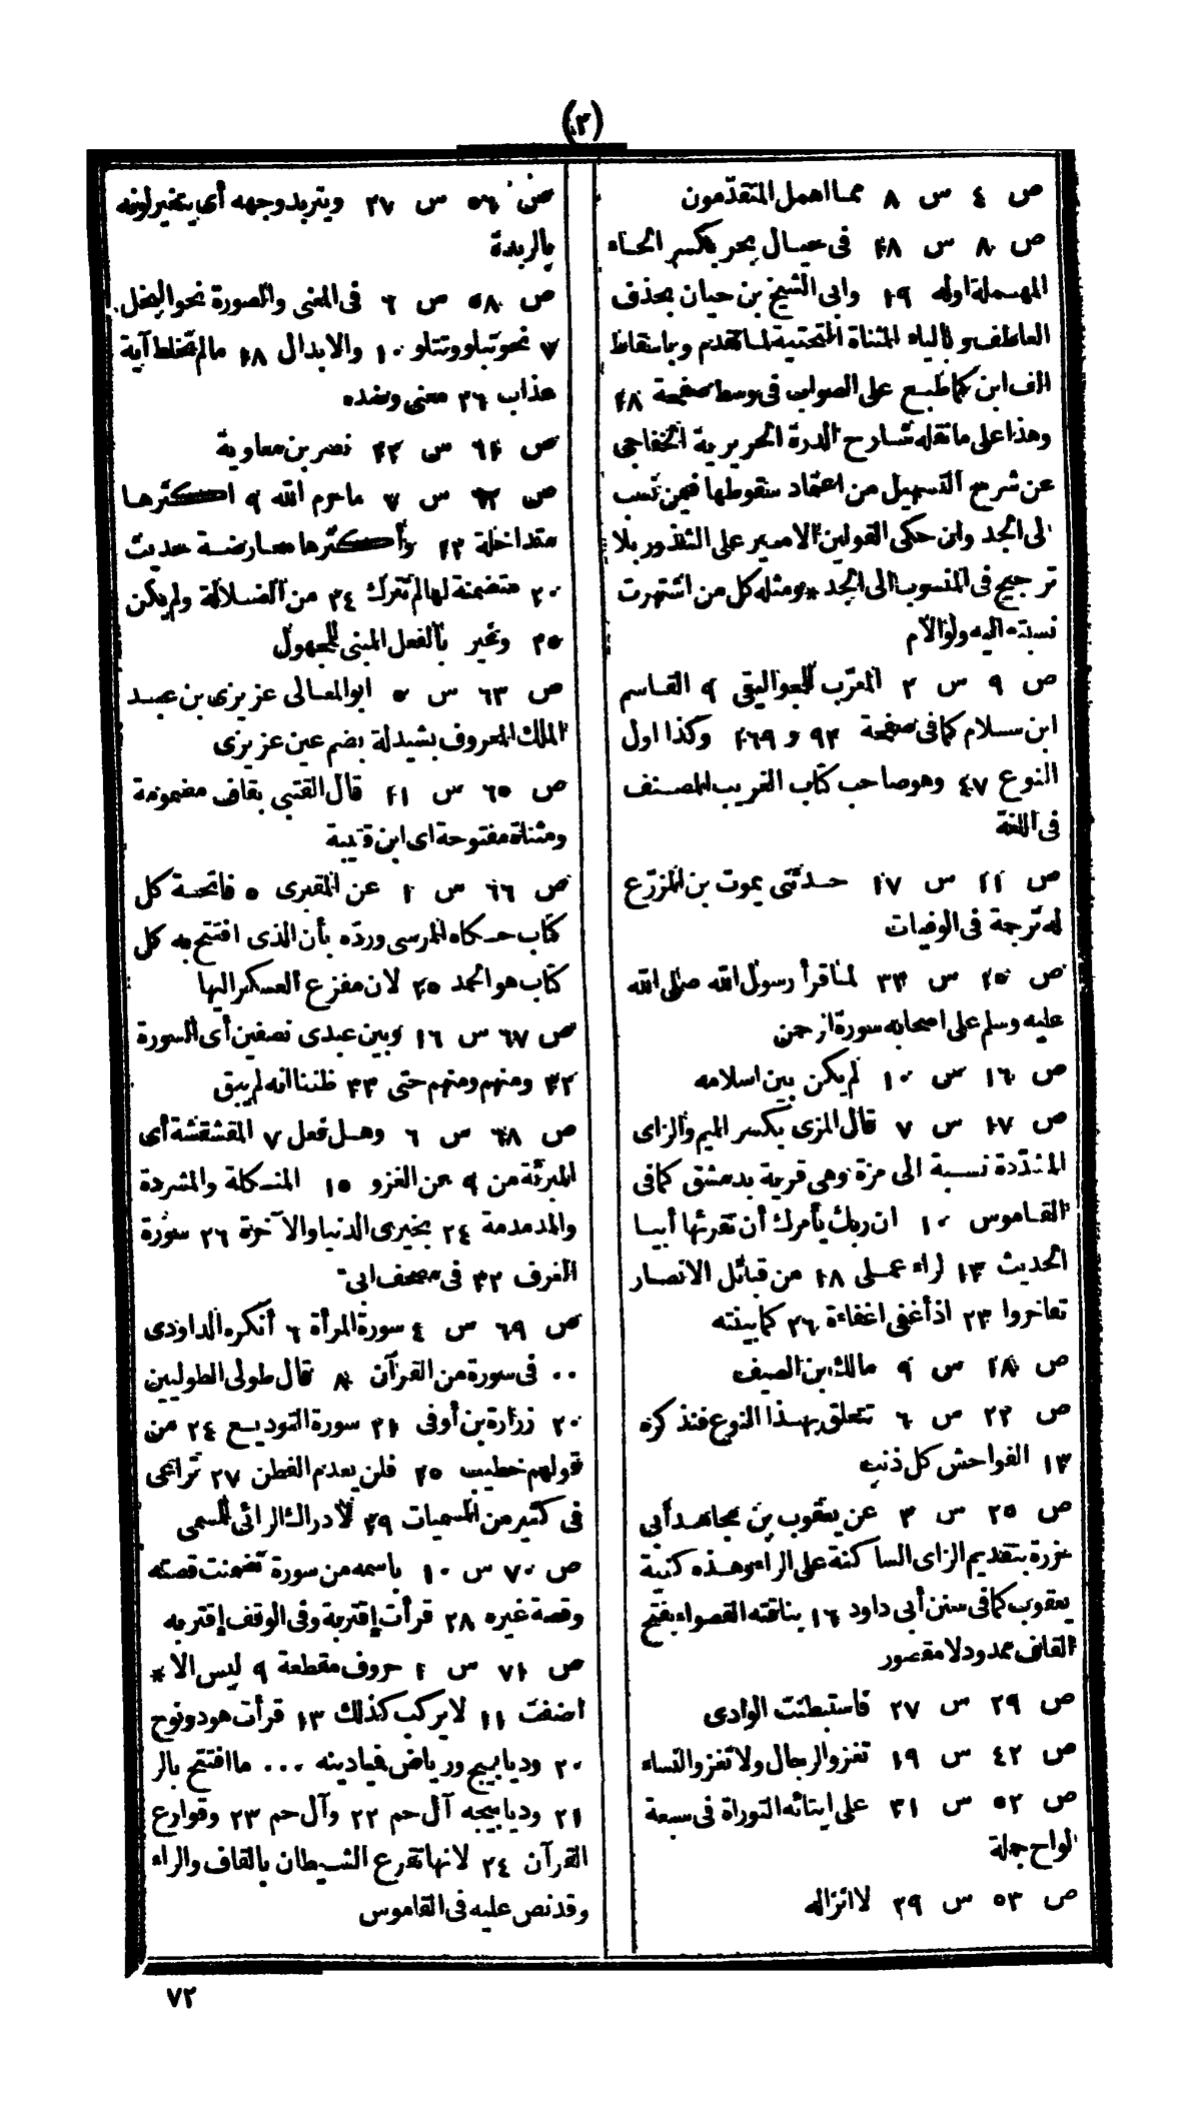 (٢)
ص ٤ س ٨ مما اهمل المتقدّمون
ص ٨ س ١٨ فى حيال بحر بكسر الحاء
المهملة اوله ١٩ وابى الشيخ بن حيان بحذف
العاطف وبالياء المثناة التحتية لما تقدم وباسقاط
الف ابن كما طبع على الصواب فى وسط صفحة ١٨
وهذا على ما نقله شارح الدرة الحريرية الخفاجى
عن شرح التسهيل من اعتماد سقوطها فيمن نسب
الى الجد وان حكى القولين الامير على الشذور بلا
ترجيح فى المنسوب الى الجد * ومثله كل من اشتهرت
نسبته اليه ولو الام
ص ٩ س ٢ المعرّب للجواليقى ٩ القاسم
ابن سلام كما فى صفحة ٩٣ و ١٦٩ وكذا اول
النوع ٤٧ وهو صاحب كتاب الغريب المصنف
فى اللغة
ص ١١ س ١٧ حدثنى يموت بن المزرّع
له ترجمة فى الوفيات
ص ١٥ س ٣٣ لما قرأ رسول الله صلى الله
عليه وسلم على اصحابه سورة الرحمن
ص ١٦ س ١٠ لم يكن بين اسلامه
ص ١٧ س ٧ قال المزى بكسر الميم والزاى
المشدّدة نسبة الى مزة وهى قرية بدمشق كما فى
القاموس ١٠ ان ربك يأمرك أن تقرئها أبيا
الحديث ١٣ لراء عملى ١٨ من قبائل الانصار
تفاخروا ٢٣ اذ أغفى اغفاءة ٢٦ كما بينته
ص ١٨ س ٩ مالك بن الصيف
ص ٢٣ س ٦ تتعلق بهذا النوع فنذكره
١٣ الفواحش كل ذنب
ص ٢٥ س ٣ عن يعقوب بن مجاهد أبى
حزرة بتقديم الزاى الساكنة على الراء وهذه كنية
يعقوب كما فى سنن أبى داود ١٦ بناقته القصواء بفتح
القاف ممدود لا مقصور
ص ٢٩ س ٢٧ فاستبطنت الوادى
ص ٤٢ س ١٩ تغزو الرجال ولا تغزو النساء
ص ٥٢ س ٣١ على ايتائه التوراة فى سبعة
الواح جملة
ص ٥٣ س ٢٩ لا انزاله
ص ٥٦ س ٢٧ ويتربد وجهه أى يتغير لونه
بالربدة
ص ٥٨ س ٦ فى المعنى والصورة نحو البخل
٧ نحو تبلو وتتلو ١٠ والابدال ١٨ مالم تختلط آية
عذاب ٢٦ معنى وضده
ص ٦١ س ٢٢ نصر بن معاوية
ص ٦٢ س ٧ ما حرم الله ٩ اكثرها
متداخلة ١٣ وأكثرها معارضة حديث
٢٠ متضمنة لها لم تترك ٢٤ من الضلالة ولم يكن
٣٥ وتخير بالفعل المبنى للمجهول
ص ٦٣ س ٥ ابو المعالى عزيزى بن عبد
الملك المعروف بشيدلة بضم عين عزيزى
ص ٦٥ س ٢١ قال القتبى بقاف مضمومة
ومثناة مفتوحة اى ابن قتيبة
ص ٦٦ س ١ عن المقبرى ٥ فاتحة كل
كتاب حكاه المرسى وردّه بأن الذى افتتح به كل
كتاب هو الحمد ٢٥ لان مفزع العسكر اليها
ص ٦٧ س ١٦ وبين عبدى نصفين أى السورة
٣٢ ومنهم ومنهم حتى ٣٣ ظننا انه لم يبق
ص ٦٨ س ٦ وهل فعل ٧ المقشقشة أى
المبرئة من ٩ عن الغزو ١٥ المنكلة والمشردة
والمدمدمة ٢٤ بخيرى الدنيا والآخرة ٢٦ سورة
الغرف ٣٢ فى مصحف ابى
ص ٦٩ س ٤ سورة المرأة ٦ أنكره الداودى
٠٠ فى سورة من القرآن ٨ قال طولى الطوليين
٢٠ زرارة بن أوفى ٢١ سورة التوديع ٢٤ من
قولهم خطيب ٢٥ فلن يعدم الفطن ٢٧ تراعى
فى كثير من المسميات ٢٩ لادراك الرائى للمسمى
ص ٧٠ س ١٠ باسمه من سورة تضمنت قصته
وقصة غيره ٢٨ قرأت إقتربة وفى الوقف إقتربه
ص ٧١ س ١ حروف مقطعة ٩ ليس الا *
اضفت ١١ لا يركب كذلك ١٣ قرأت هود ونوح
٢٠ وديابيج ورياض فيادينه ... ما افتتح بالر
٢١ وديابيجه آل حم ٢٢ وآل حم ٢٣ وقوارع
القرآن ٢٤ لانها تقرع الشيطان بالقاف والراء
وقد نص عليه فى القاموس
٧٢